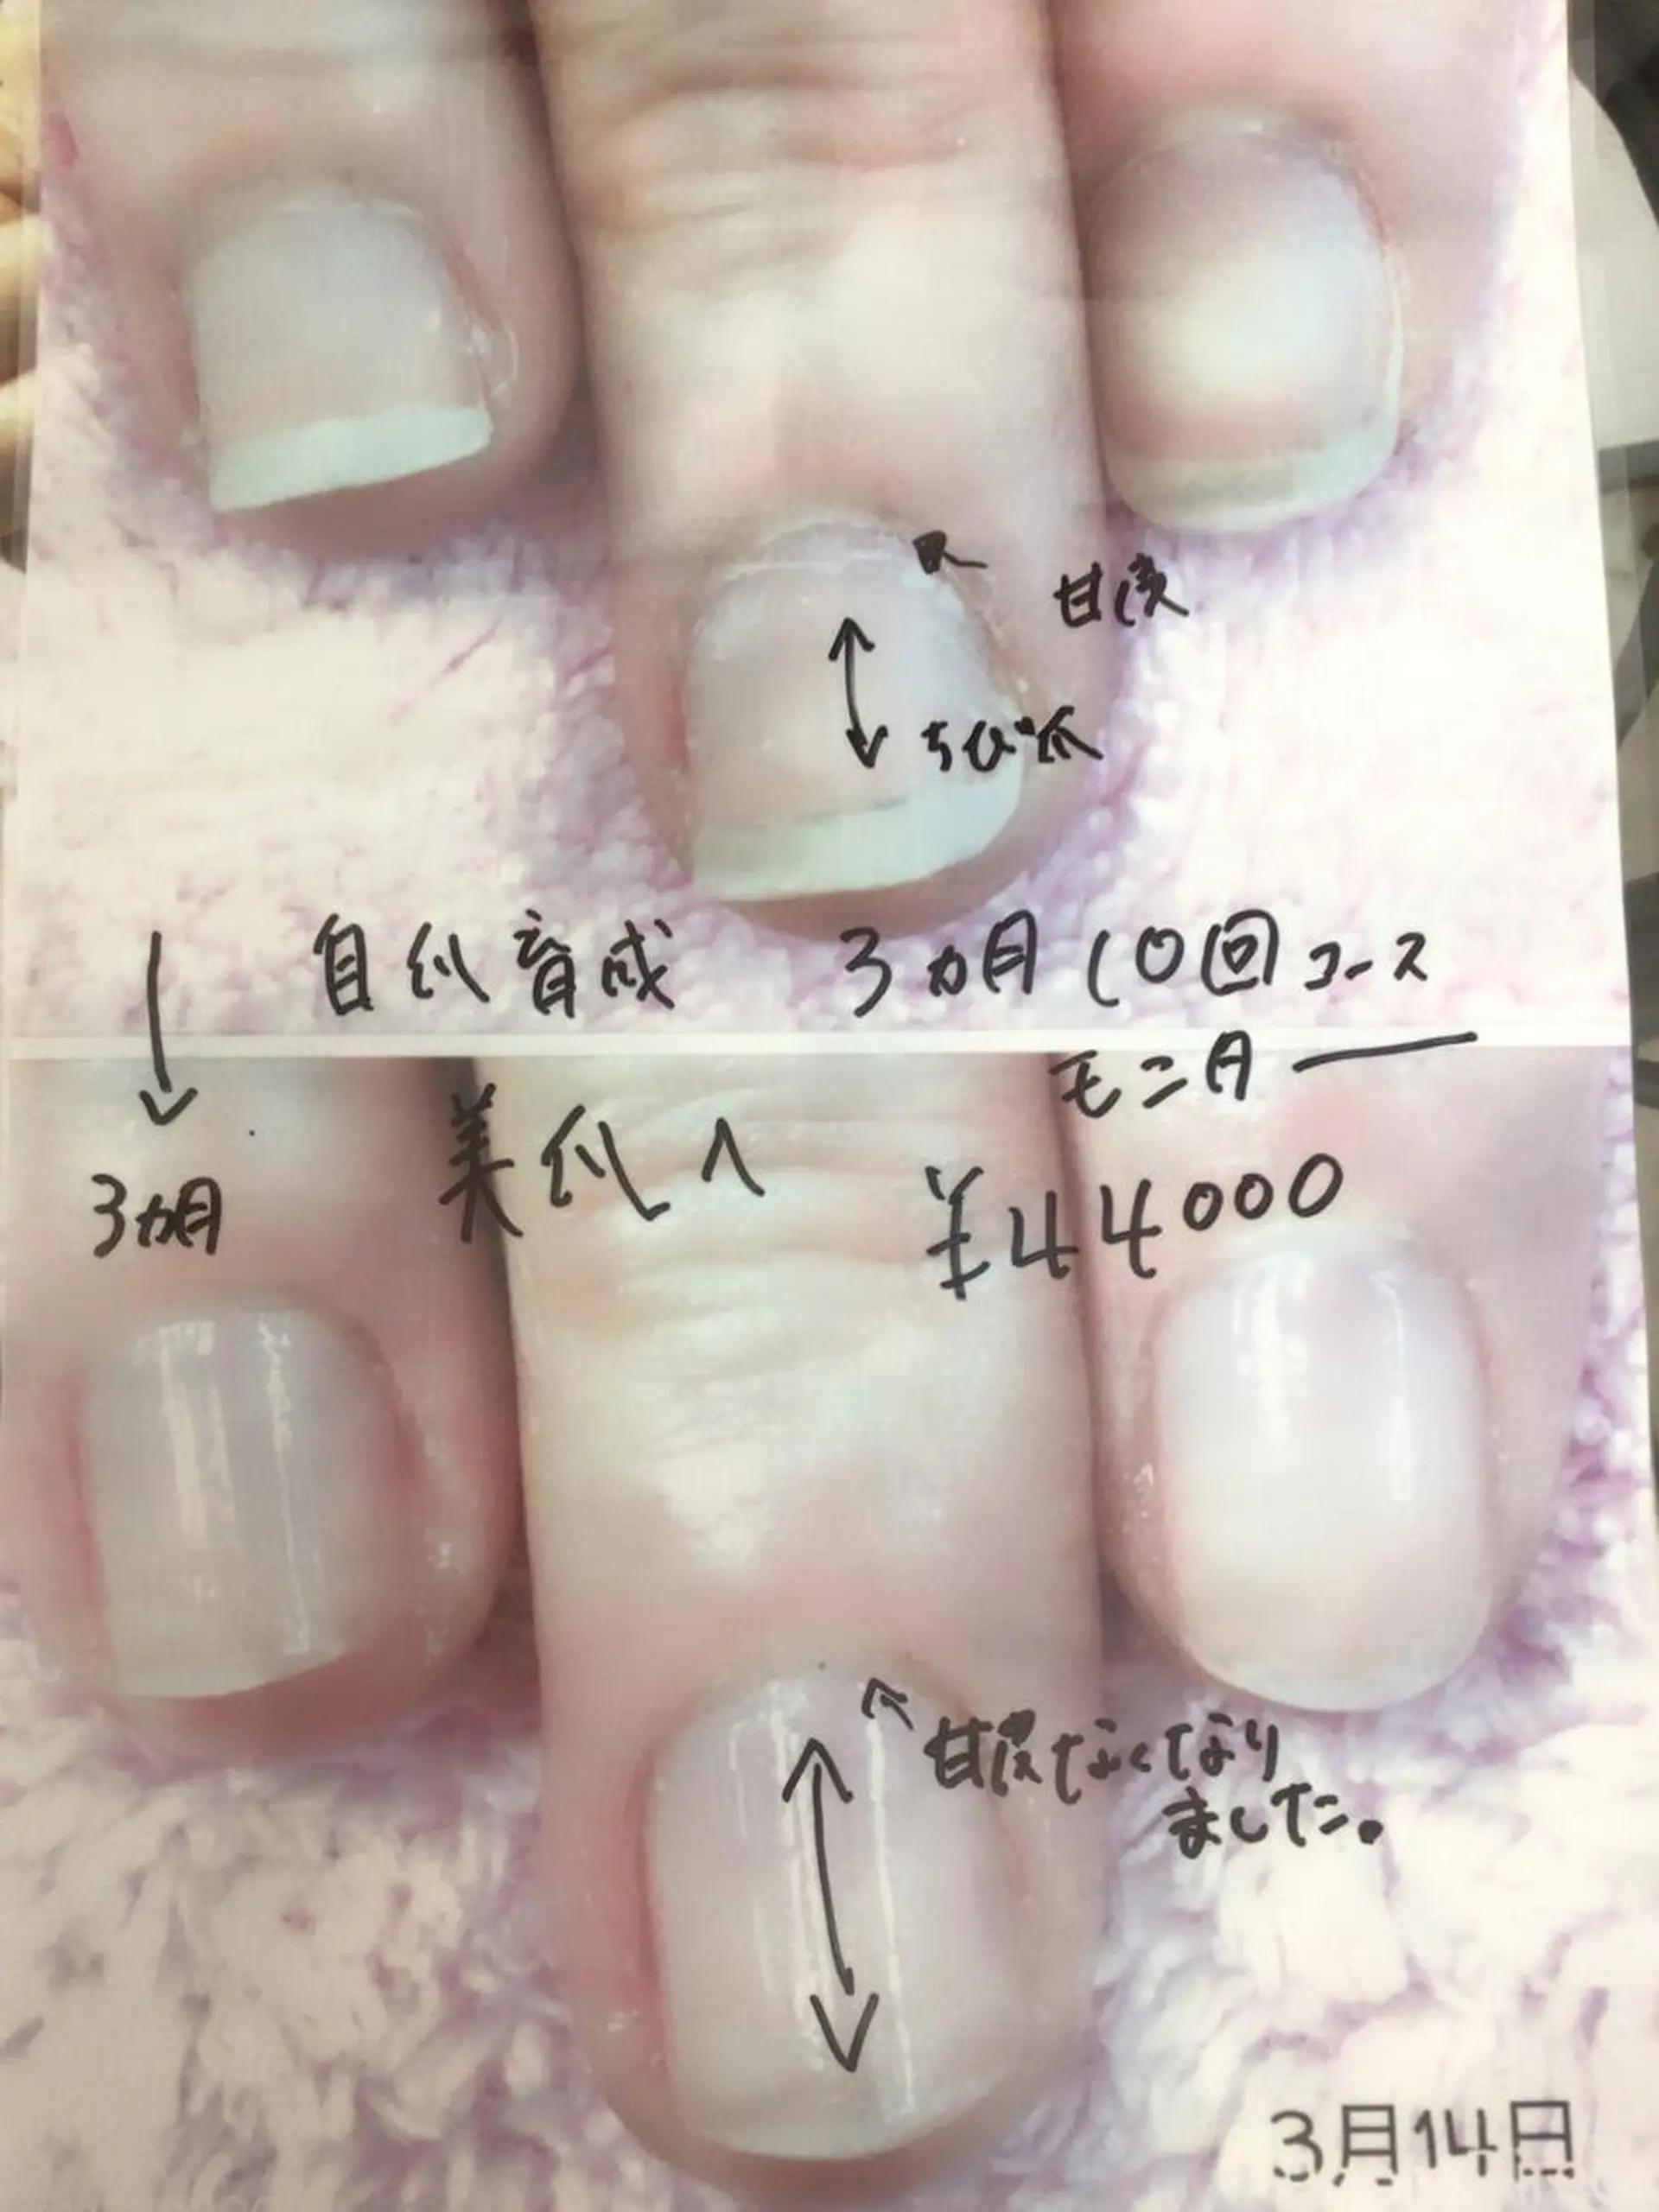 甘皮
ちび爪
自爪育成 3カ月10回コース
モニター
3カ月
美爪へ
¥44000
甘皮なくなり
ました。
3月14日